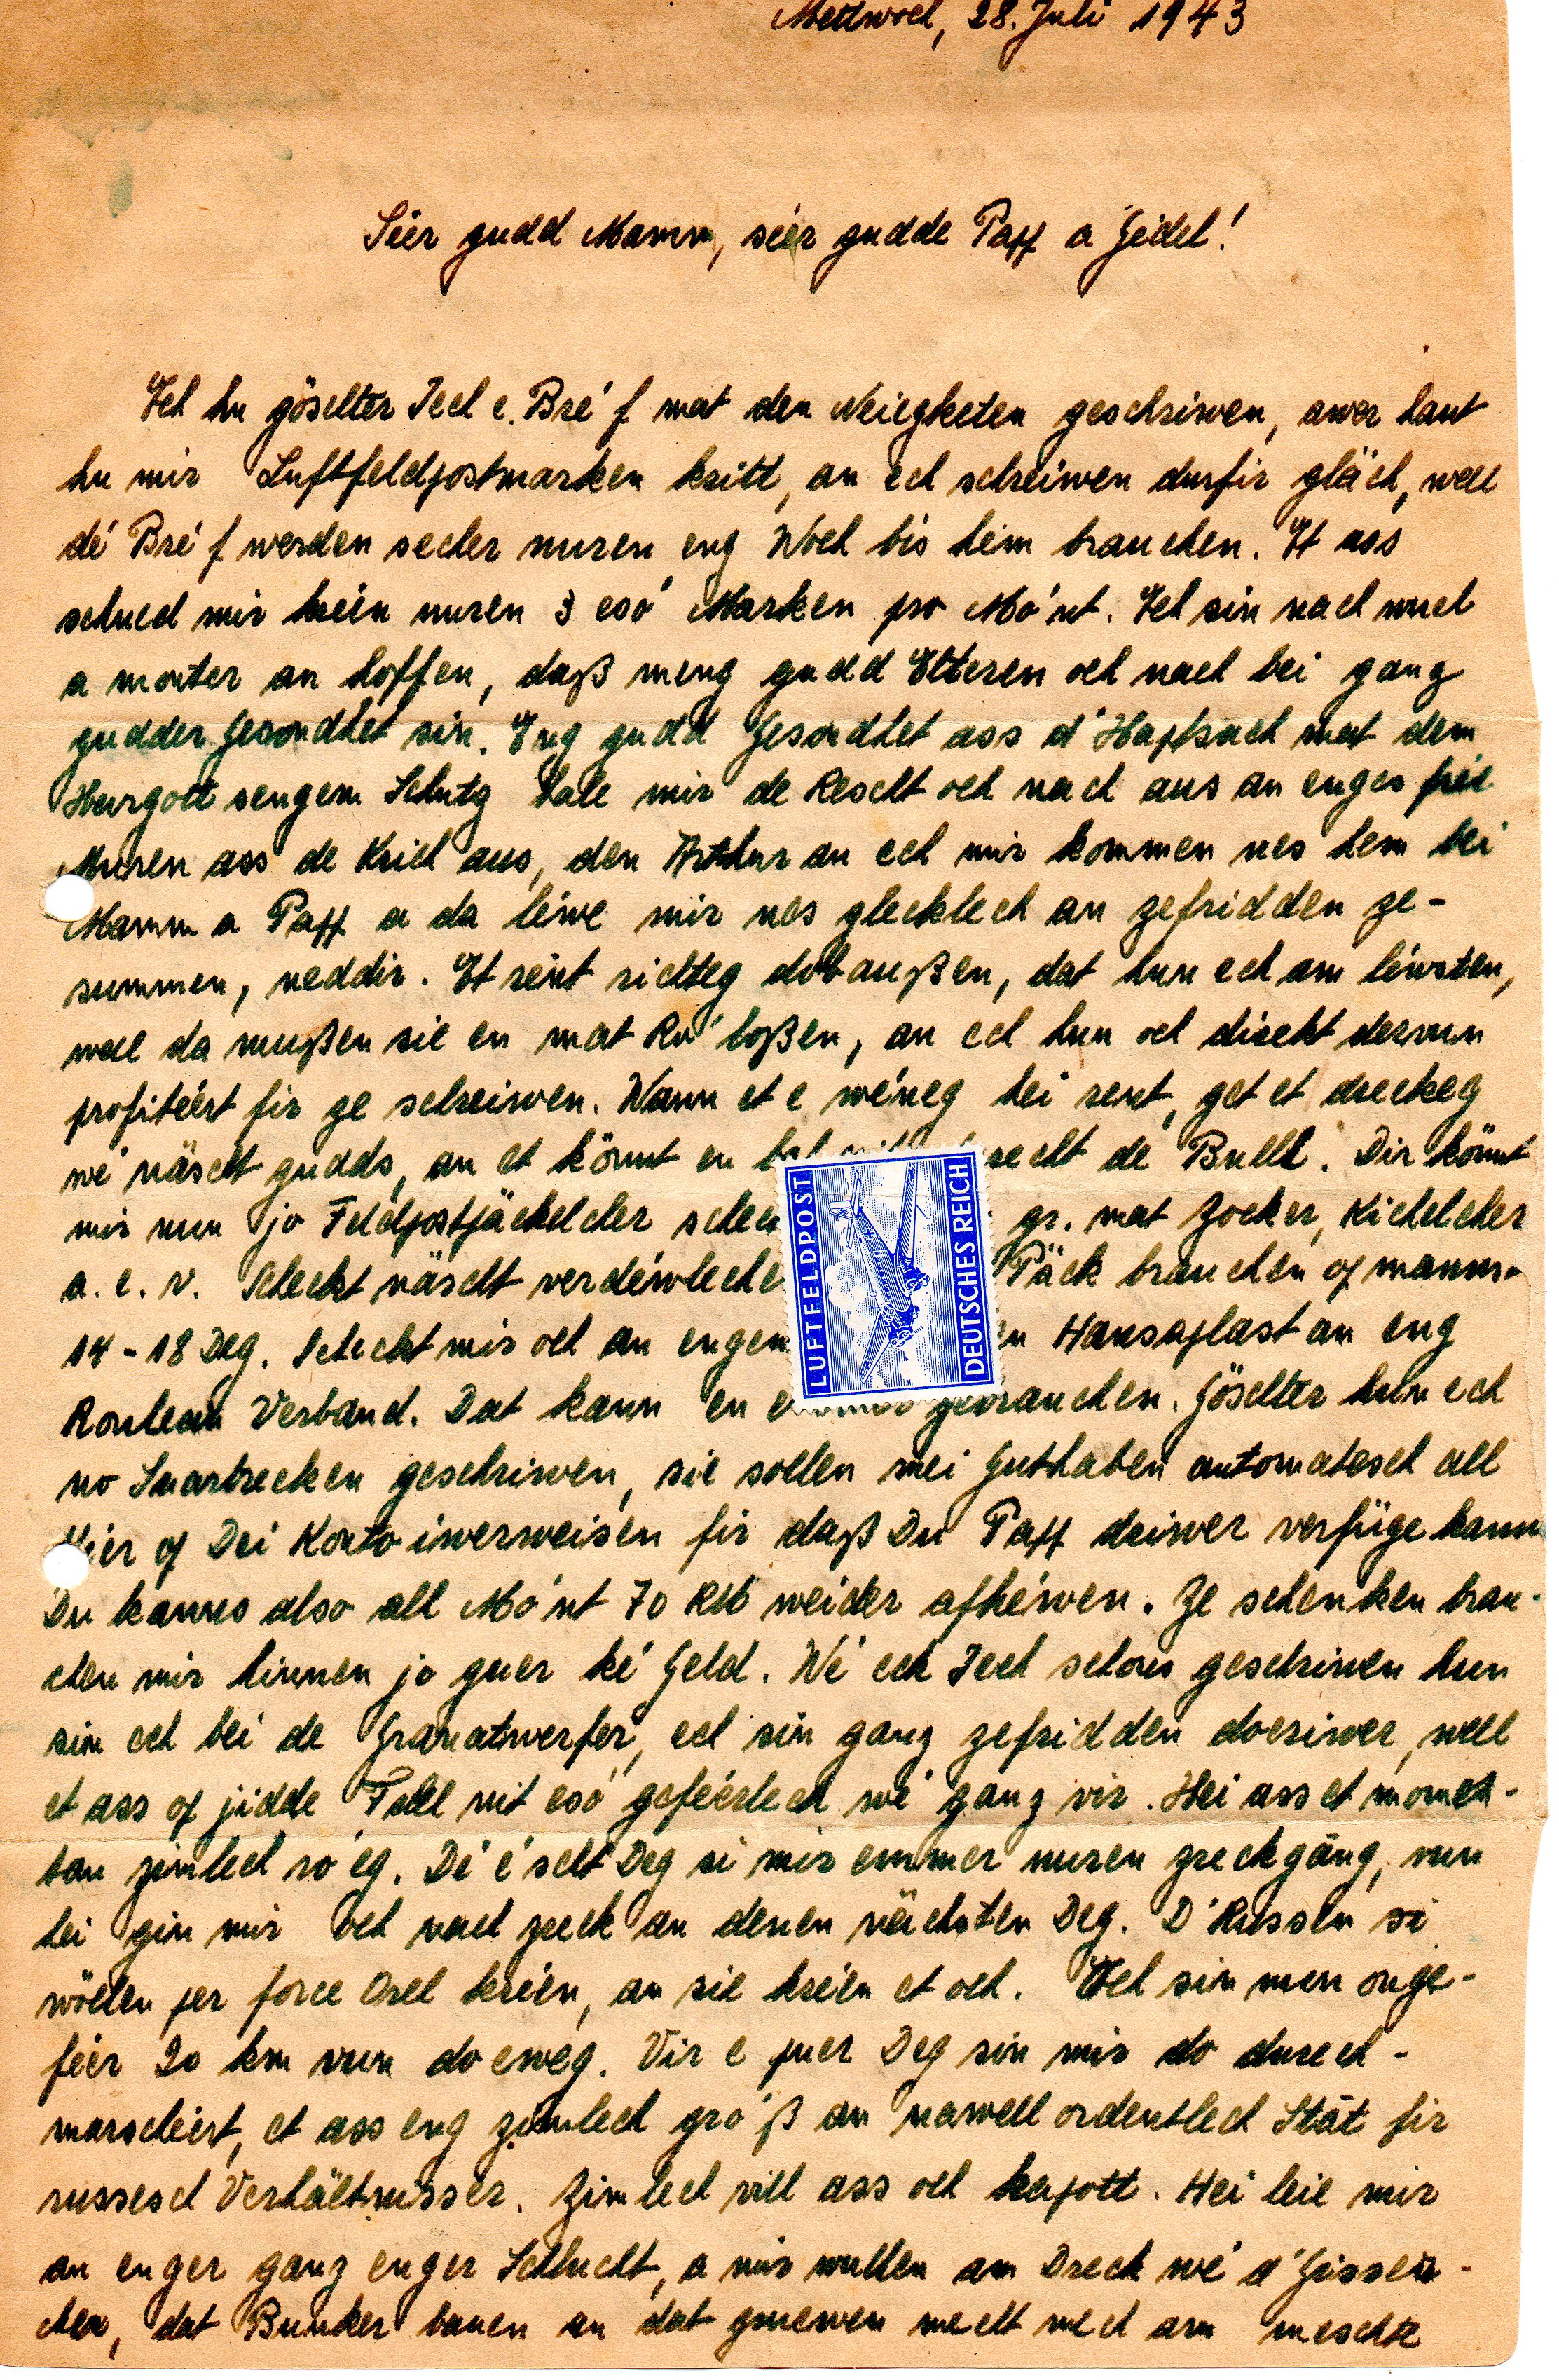 Mettwoch, 28. Juli 1943
Séer gudd Mamm, séer gudde Papp a Gidel!
Ech hu göschter Iech e Bréf mat den Neiegketen geschriwen, awer haut
hu mir Luftfeldpostmarken kritt, an ech schreiwen durfir gläch, well
dé Bréf werden secher nuren eng Woch bis heim brauchen. Et ass
schued mir kréin nuren 3 esó Marken pro Mónt. Ech sin nach wuel
a monter an hoffen, daß meng gudd Elteren och nach bei ganz
gudder Gesondhet sin. Eng gudd Gesondhet ass d'Haptsach mat dem
Herrgott sengem Schutz hale mir de Rescht och nach aus an enges fréi
Muren ass de Krich aus, den Arthur an ech mir kommen nes hem bei
Mamm a Papp a da léwe mir nes glecklech an zefridden ze-
summen, neddir. Et rént richteg dobaußen, dat hun ech am léiwsten,
well da mußen sie en mat Ró loßen, an ech hun och direkt dervun
profitéert fir ze schreiwen. Wann et e wéneg hei rent, get et dreckeg
wé näscht gudds, an et könnt en bal de Bulli. Dir könnt
mir nun jo Feldpostpäckelcher gr. mat Zocker, Kichelcher
a. e. v. Scheckt näscht Päck brauchen op manns
14-18 Deg. Scheckt mir och an engem Hansaplast an eng
Rouleau Verband. Dat kann en Göschter hun ech
no Saarbrecken geschriwen, sie sollen mei Guthaben automatesch all
op Dei Konto iwerweisen fir daß Du Papp driwer verfüge kann
Du kanns also all Mónt 70 RM weider afhéwen. Ze schenken brau-
chen mir hinnen jo guer ké Geld. Wé ech Iech schons geschriwen hun
sin ech bei de Granatwerfer, ech sin ganz zefridden doriwer, well
et ass op jidde Fall nit esó geféerlech wé ganz vir. Hei ass et momen-
tan zimlech róeg. Dé éscht Deg si mir emmer nuren zreckgäng, vun
hei gin mir och nach zreck an denen nächsten Deg. D'Russen si
wöllen per force Orel kréien, an sie kréien et och. Ech sin nun onge-
féer 20 km vun do eweg. Vir e puer Deg sin mir do durech-
marschéert, et ass eng zimlech gróß an nawell ordentlech Stāt fir
russesch Verhältnisser. Zimlech vill ass och kapott. Hei leie mir
an enger ganz enger Schlucht, a mir wullen am Dreck wé d'
dat Bunker bauen an dat gruewen mecht mech am meschte
LUFTFELDPOST
DEUTSCHES REICH